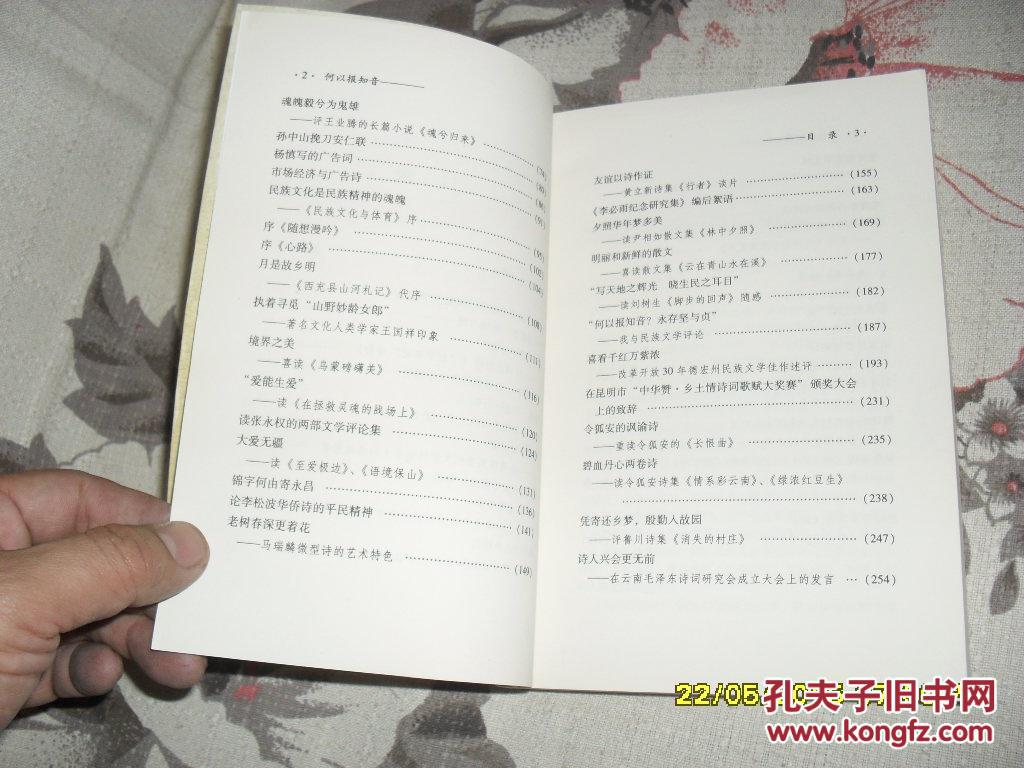 ·2· 何以报知音
魂魄毅兮为鬼雄
——评王业腾的长篇小说《魂兮归来》
孙中山挽刀安仁联 (78)
杨慎写的广告词
市场经济与广告诗
民族文化是民族精神的魂魄 (91)
——《民族文化与体育》序
序《随想漫吟》 (95)
序《心路》 (102)
月是故乡明 (104)
——《西充县山河札记》代序
执着寻觅“山野妙龄女郎” (108)
——著名文化人类学家王国祥印象
境界之美 (111)
——喜读《乌蒙磅礴美》
“爱能生爱” (116)
——读《在拯救灵魂的战场上》
读张永权的两部文学评论集 (120)
大爱无疆 (124)
——读《至爱极边》、《语境保山》
锦字何由寄永昌 (131)
论李松波华侨诗的平民精神 (136)
老树春深更着花 (141)
——马瑞麟微型诗的艺术特色 (149)
目 录 ·3·
友谊以诗作证
——黄立新诗集《行者》谈片 (155)
《李必雨纪念研究集》编后絮语 (163)
夕照华年梦多美
——读尹相如散文集《林中夕照》 (169)
明丽和新鲜的散文
——喜读散文集《云在青山水在溪》 (177)
“写天地之辉光 晓生民之耳目”
——读刘树生《脚步的回声》随感 (182)
“何以报知音？永存坚与贞”
——我与民族文学评论 (187)
喜看千红万紫浓
——改革开放30年德宏州民族文学佳作述评 (193)
在昆明市“中华赞·乡土情诗词歌赋大奖赛”颁奖大会
上的致辞 (231)
令狐安的讽谕诗
——重读令狐安的《长恨曲》 (235)
碧血丹心两卷诗
——读令狐安诗集《情系彩云南》、《绿浓红豆生》
(238)
凭寄还乡梦，殷勤入故园
——评鲁川诗集《消失的村庄》 (247)
诗人兴会更无前
——在云南毛泽东诗词研究会成立大会上的发言 (254)
22/05/
孔夫子旧书网
www.kongfz.com